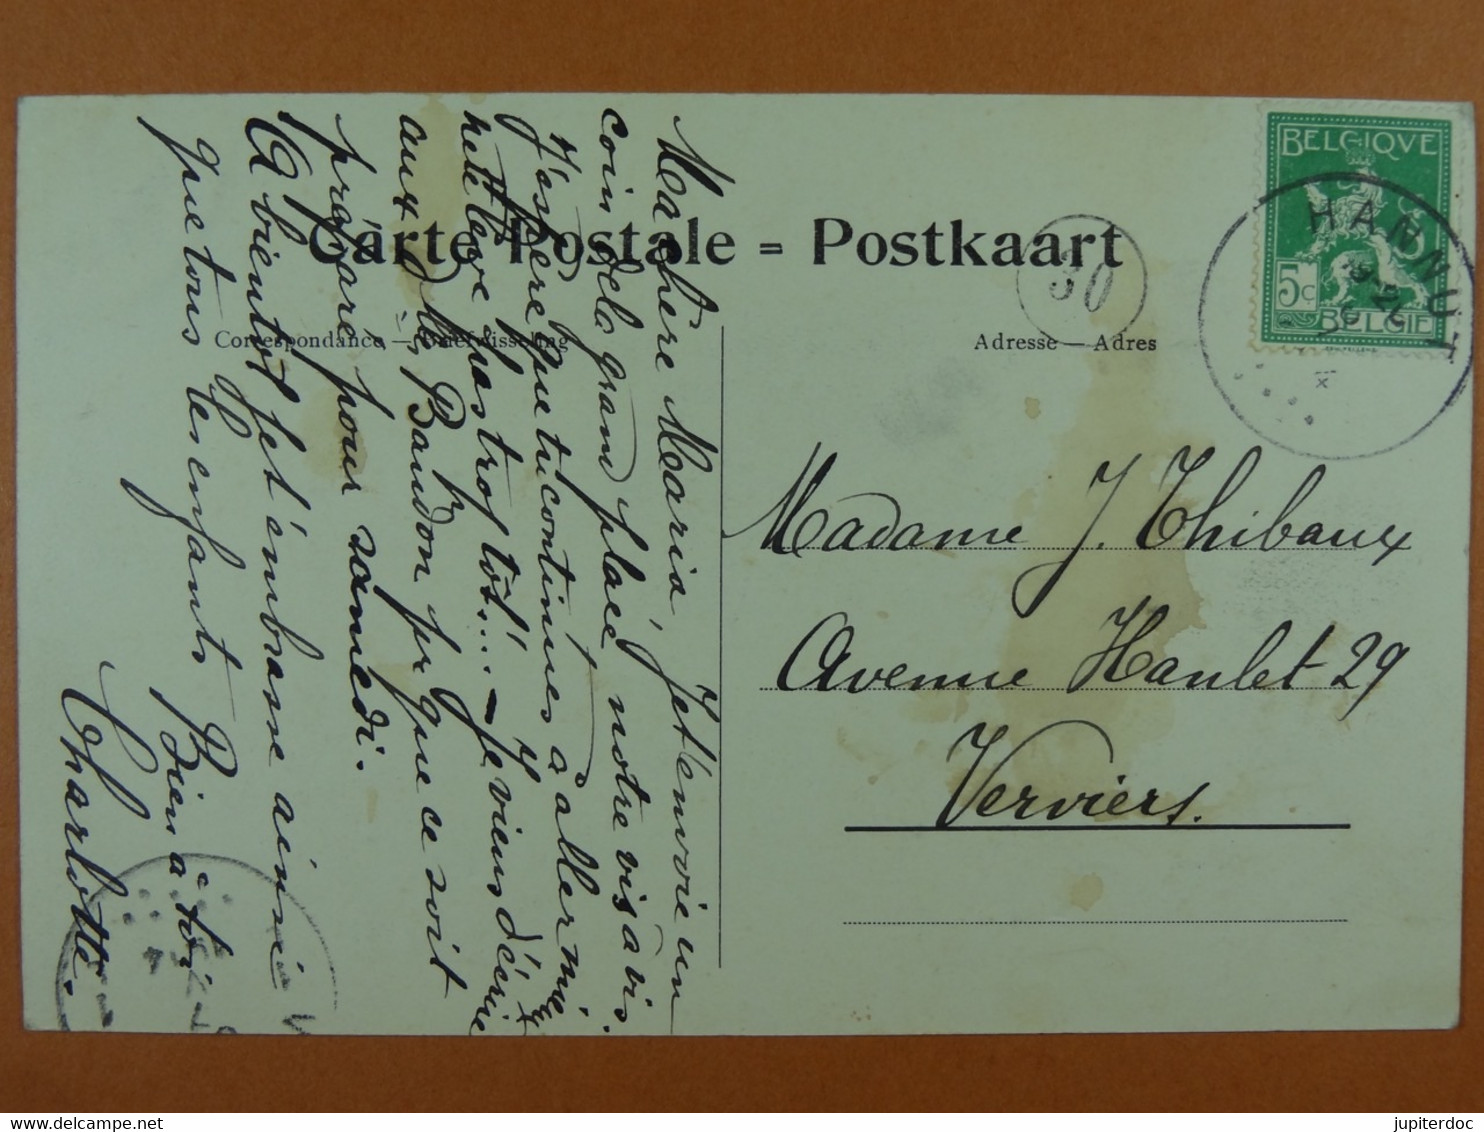 Carte Postale = Postkaart
Correspondance — Briefwisseling
Adresse — Adres
30
BELGIQVE
5c
BELGIE
HANNUT
Ma chère Maria, Je t'envoie un
coin dela grand place notre vis à vis.
J'espère que tu continues à aller mieux
ne te leve pas trop tôt!... — Je viens d'écrire
aux Dlles Baudon pr que ce soit
préparé pour samedi.
A bientôt je t'embrasse ainsi
que tous les enfants Bien à toi
Charlotte.
Madame J. Thibaux
Avenue Hanlet 29
Verviers.
jupiterdoc
delcampe.net